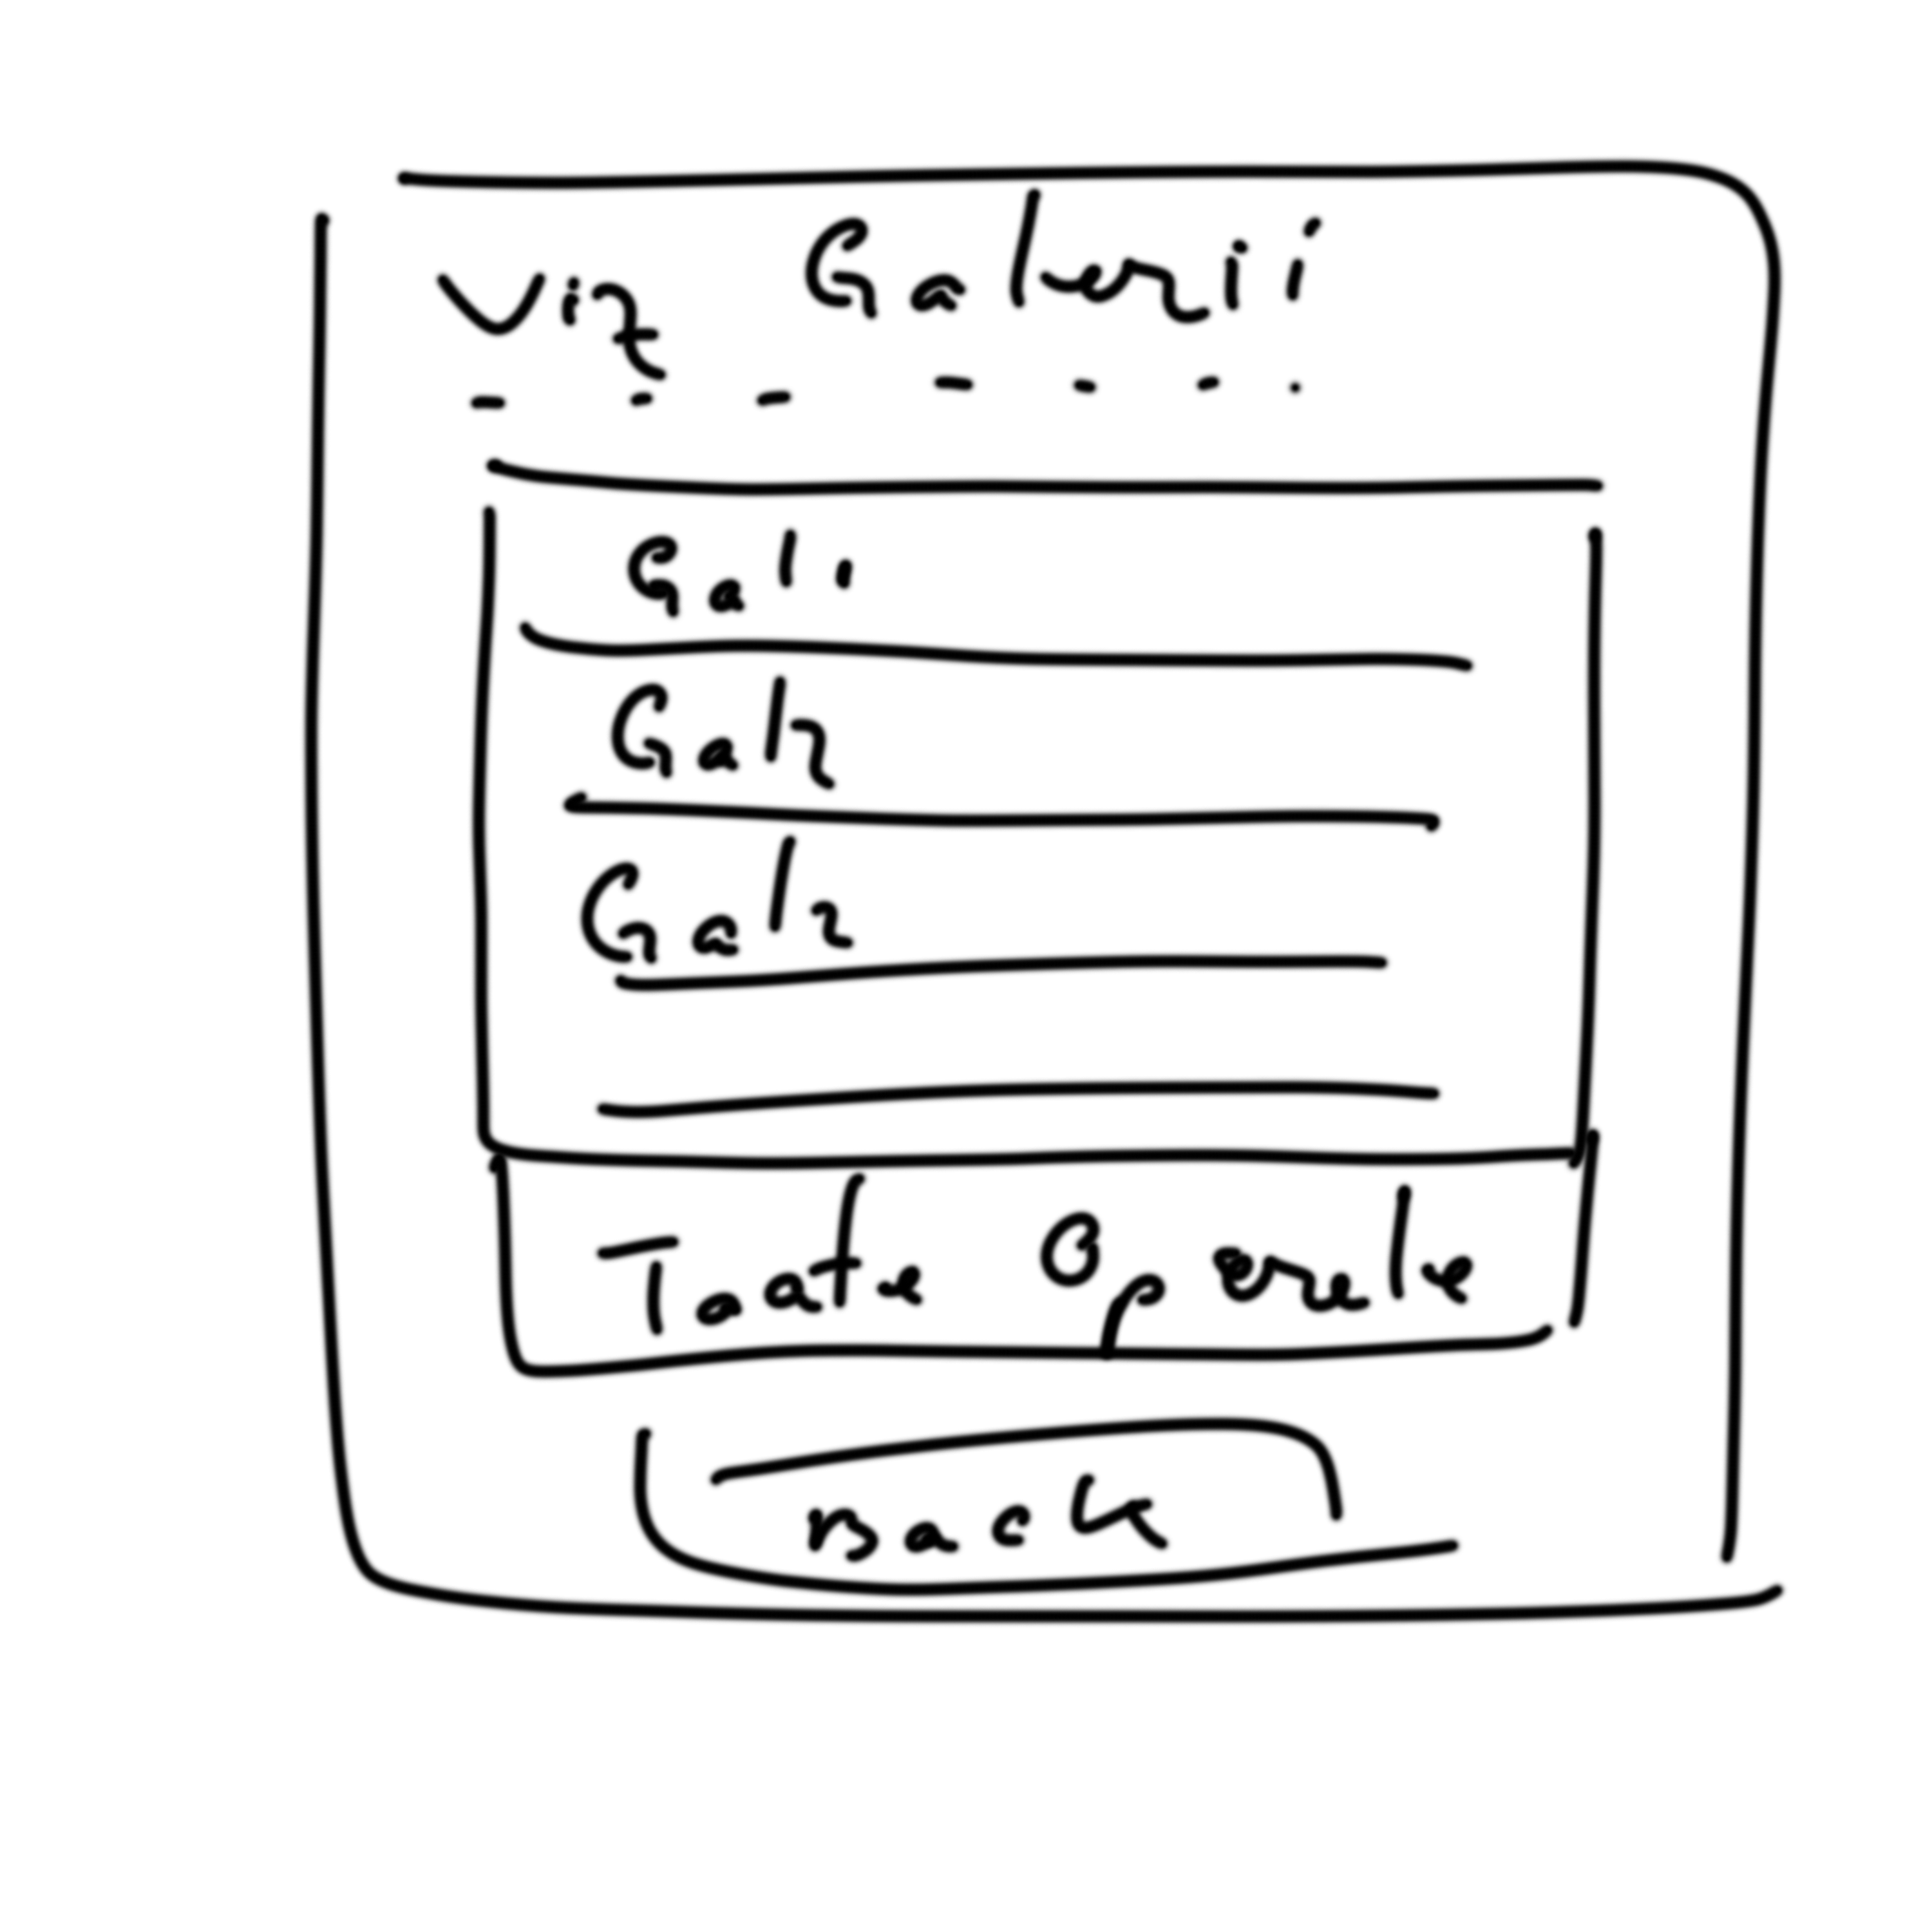 Viz Galerii
Gal 1
Gal 2
Gal 2
Toate Operele
Back